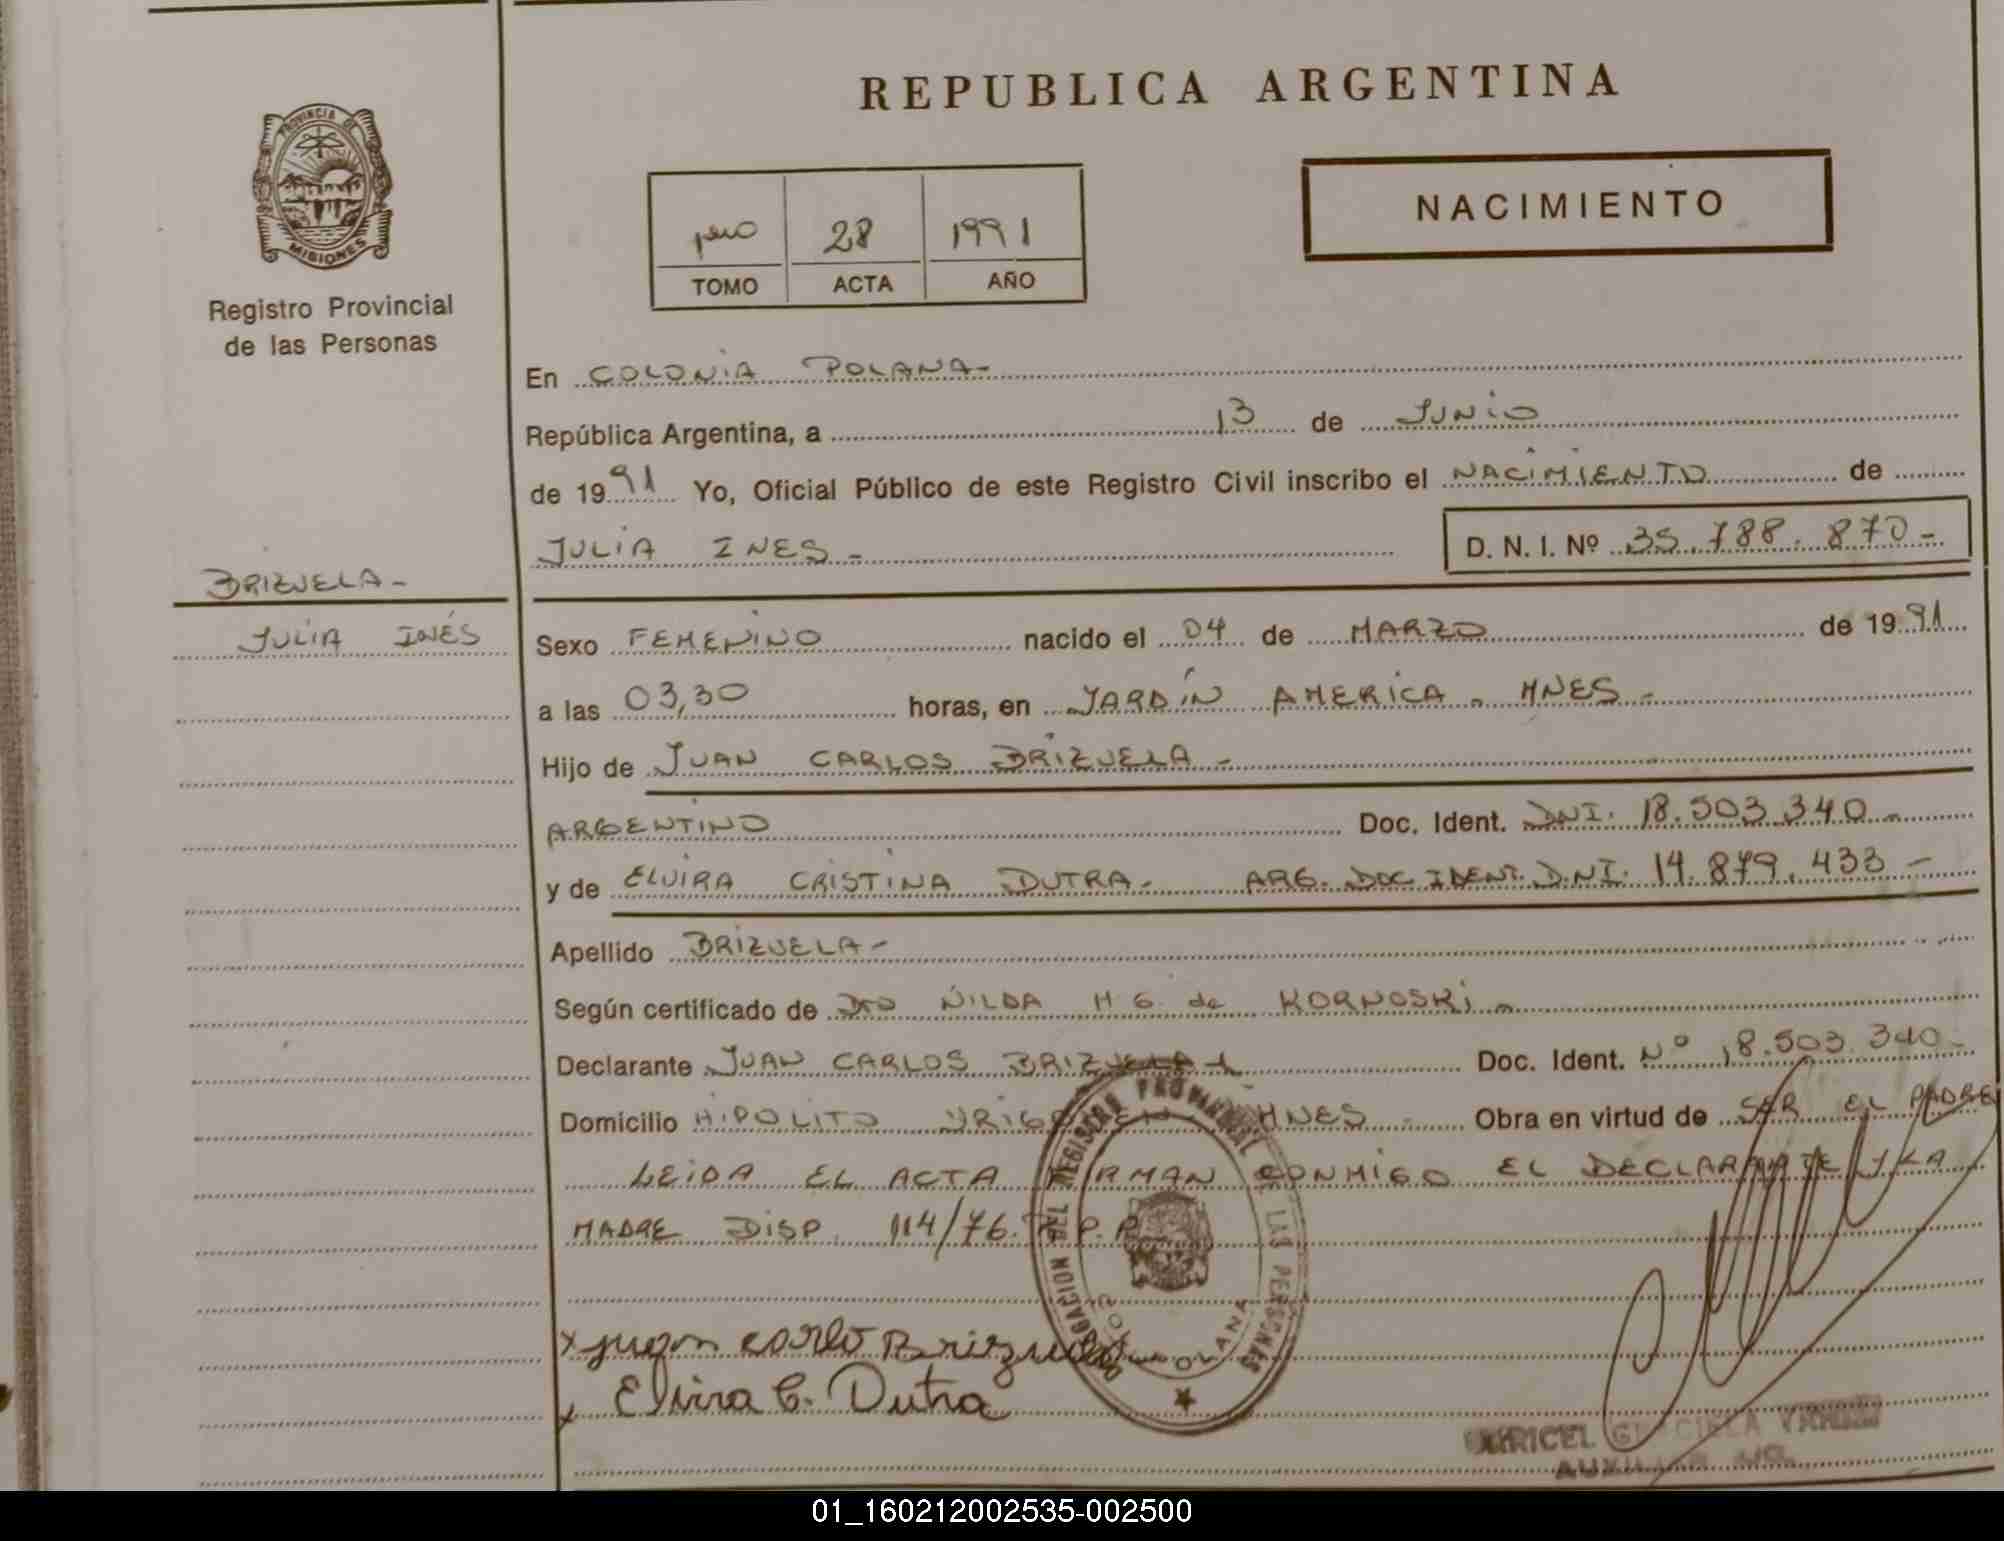 REPUBLICA ARGENTINA
PROVINCIA DE
MISIONES
Registro Provincial
de las Personas
NACIMIENTO
28 1991
TOMO ACTA AÑO
En COLONIA POLANA-
República Argentina, a 13 de JUNIO
de 1991 Yo, Oficial Público de este Registro Civil inscribo el NACIMIENTO de
JULIA INES - D. N. I. Nº 35.788.870-
BRIZUELA-
JULIA INÉS
Sexo FEMENINO nacido el 04 de MARZO de 1991
a las 03,30 horas, en JARDÍN AMERICA - MNES -
Hijo de JUAN CARLOS BRIZUELA -
ARGENTINO Doc. Ident. DNI. 18.503.340 -
y de ELVIRA CRISTINA DUTRA- ARG. DOC IDENT. D.N.I. 14.879.433 -
Apellido BRIZUELA-
Según certificado de NILDA H G. de KORNOSKI -
Declarante JUAN CARLOS BRIZUELA - Doc. Ident. Nº 18.503.340-
Domicilio HIPOLITO YRIGOYEN MNES - Obra en virtud de SER EL PADRE
LEIDA EL ACTA FIRMAN CONMIGO EL DECLARANTE Y LA
MADRE DISP. 114/76. R.P.P.
DELEGACION DEL REGISTRO PROVINCIAL DE LAS PERSONAS
COL. POLANA
x juan carlo Brizuela
x Elvira C. Dutra
GRACIELA
AUXILIAR
01_160212002535-002500